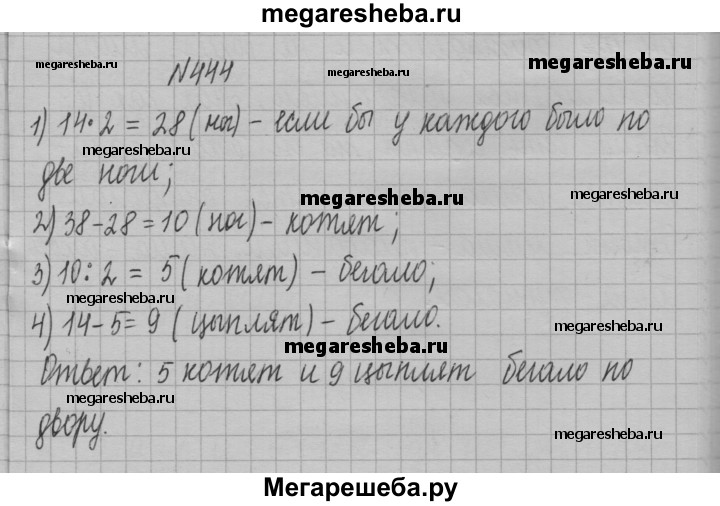 megaresheba.ru
megaresheba.ru
№444
megaresheba.ru
megaresheba.ru
1) 14·2 = 28 (ног) – если бы у каждого было по
megaresheba.ru
две ноги;
megaresheba.ru
megaresheba.ru
2) 38-28=10 (ног) – котят;
3) 10:2 = 5 (котят) – бегало;
megaresheba.ru
4) 14-5=9 (цыплят) – бегало.
megaresheba.ru
megaresheba.ru
Ответ: 5 котят и 9 цыплят бегало по
megaresheba.ru
двору.
megaresheba.ru
Мегарешеба.ру